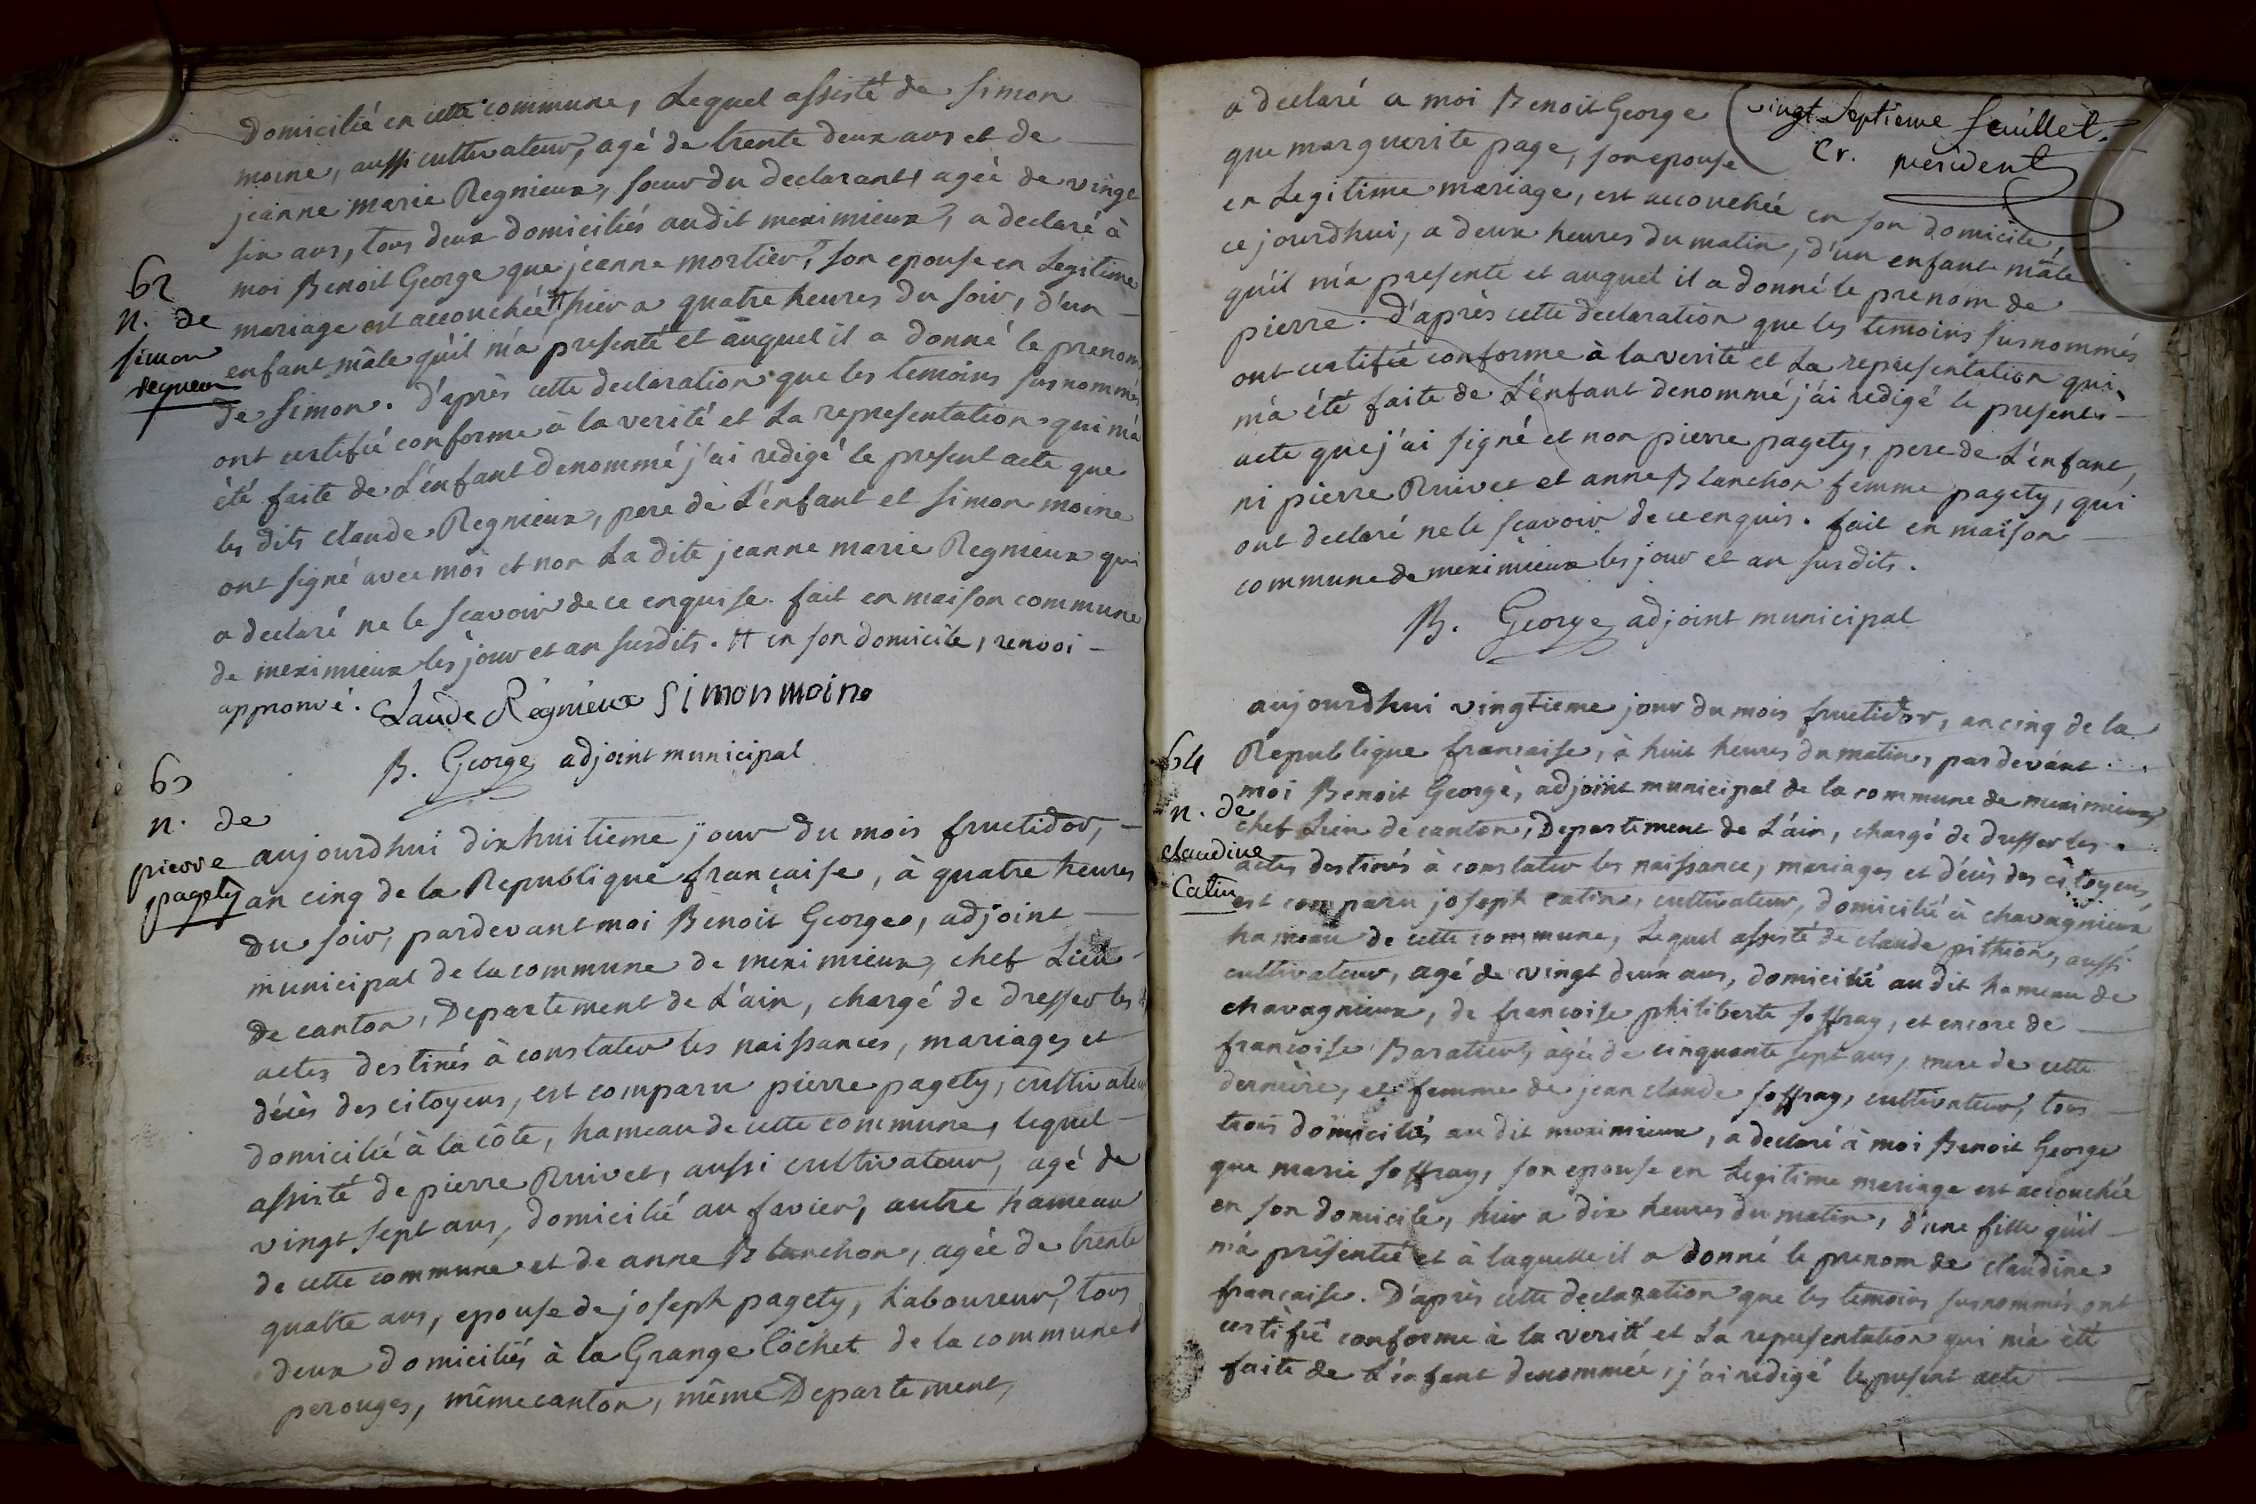 domicilié en cette commune, Lequel assisté de simon
moine, aussi cultivateur, agé de trente deux ans et de
jeanne marie Regnieux, sœur du declarant, agée de vingt
six ans, tous deux domiciliés audit meximieux, a declaré à
moi Benoit George que jeanne mortier, son epouse en Legitime
62
n. de
simon
regneux
mariage est accouchée # hier a quatre heures du soir, d'un
enfant mâle qu'il m'a presenté et auquel il a donné le prenom
de simon. D'après cette declaration que les temoins susnommés
ont certifié conforme à la verité et La representation qui m'a
été faite de L'enfant denommé j'ai redigé le present acte que
les dits claude Regnieux, pere de L'enfant et simon moine
ont signé avec moi et non La dite jeanne marie Regnieux qui
a declaré ne le scavoir de ce enquise. fait en maison commune
de meximieux les jour et an susdits. # en son domicile, renvoi
approuvé. Claude Régnieux simon moine
B. George adjoint municipal
63
n. de
pierre
pagety
aujourdhui dixhuitieme jour du mois fructidor,
an cinq de la Republique française, à quatre heures
du soir, pardevant moi Benoit George, adjoint
municipal de la commune de meximieux, chef Lieu
de canton, Departement de L'ain, chargé de dresser les
actes destinés à constater les naissances, mariages et
décès des citoyens, est comparu pierre pagety, cultivateur
domicilié à la côte, hameau de cette commune, lequel
assisté de pierre Ruivet, aussi cultivateur, agé de
vingt sept ans, domicilié au favier, autre hameau
de cette commune et de anne Blanchon, agée de trente
quatre ans, epouse de joseph pagety, Laboureur, tous
deux domiciliés à la Grange Cochet de la commune d
perouges, même canton, même Departement,
vingt septieme feuillet.
cr. président
a declaré a moi Benoit George
que marguerite page, son epouse
en Legitime mariage, est accouchée en son domicile,
ce jourdhui, a deux heures du matin, d'un enfant mâle
qu'il m'a presenté et auquel il a donné le prenom de
pierre. D'après cette declaration que les temoins susnommés
ont certifié conforme à la verité et La representation qui
m'a été faite de L'enfant denommé j'ai redigé le present
acte que j'ai signé et non pierre pagety, pere de L'enfant,
ni pierre Ruivet et anne Blanchon femme pagety, qui
ont declaré ne le scavoir de ce enquis. fait en maison
commune de meximieux les jour et an susdits.
B. George adjoint municipal
64
n. de
claudine
Catin
aujourdhui vingtieme jour du mois fructidor, an cinq de la
Republique francaise, à huit heures du matin, pardevant
moi Benoit George, adjoint municipal de la commune de meximieux
chef Lieu de canton, Departement de L'ain, chargé de dresser les
actes destinés à constater les naissance, mariages et décès des citoyens,
est comparu joseph catin, cultivateur, domicilié à chavagnieux
hameau de cette commune, Lequel assisté de claude pithion, aussi
cultivateur, agé de vingt deux ans, domicilié audit hameau de
chavagnieux, de francoise philiberte soffray, et encore de
francoise Baratier, agée de cinquante sept ans, mere de cette
derniere, et femme de jean claude soffray, cultivateur, tous
trois domiciliés au dit meximieux, a declaré à moi Benoit George
que marie soffray, son epouse en Legitime mariage est accouchée
en son domicile, hier a dix heures du matin, d'une fille qu'il
m'a présentée et à laquelle il a donné le prenom de claudine
francaise. D'après cette declaration que les temoins susnommés ont
certifié conforme à la verité et La representation qui m'a été
faite de L'enfant denommée, j'ai redigé le present acte